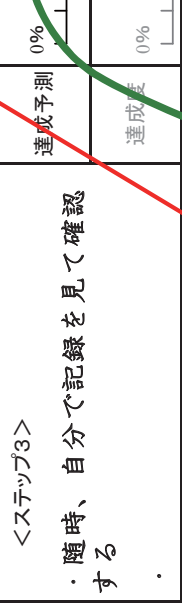 <ステップ3>
・随時、自分で記録を見て確認
する
・
達成予測
0%
達成度
0%